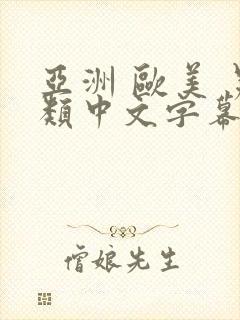 亞洲 歐美
類中文字幕
僧娘先生